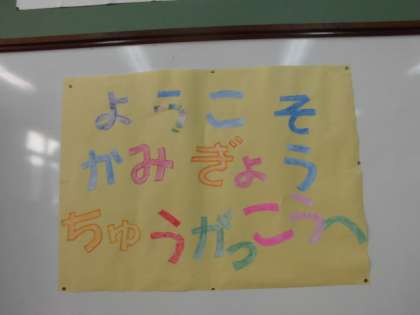 ようこそ
かみぎょう
ちゅうがっこうへ